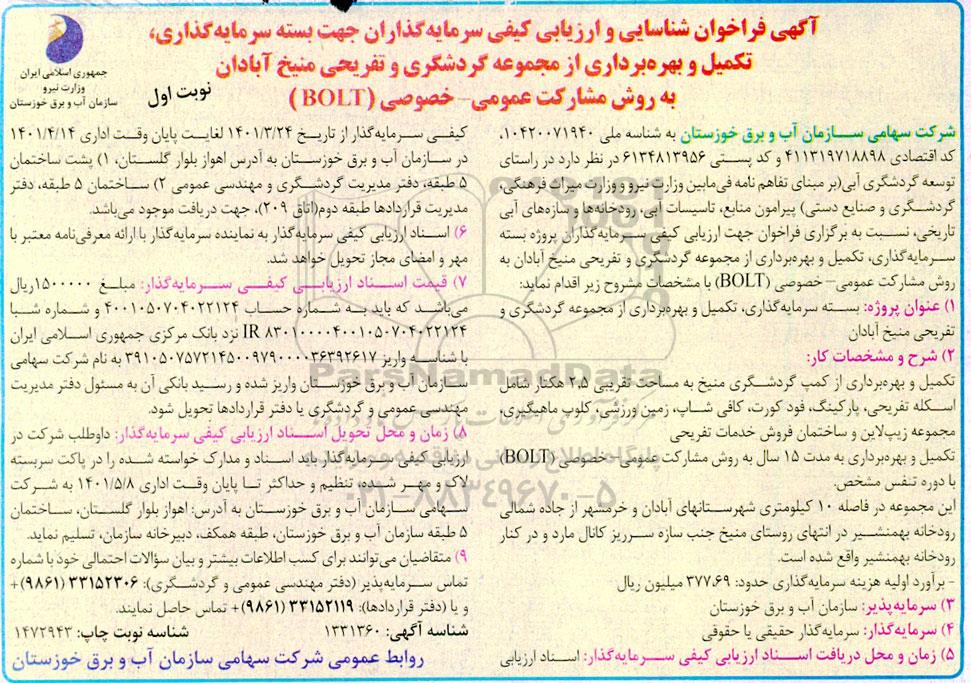 آگهی فراخوان شناسایی و ارزیابی کیفی سرمایه‌گذاران جهت بسته سرمایه‌گذاری،
تکمیل و بهره‌برداری از مجموعه گردشگری و تفریحی منیخ آبادان
به روش مشارکت عمومی- خصوصی (BOLT)
نوبت اول
جمهوری اسلامی ایران
وزارت نیرو
سازمان آب و برق خوزستان
شرکت سهامی سازمان آب و برق خوزستان به شناسه ملی ۱۰۴۲۰۰۷۱۹۴۰،
کد اقتصادی ۴۱۱۳۱۹۷۱۸۸۹۸ و کد پستی ۶۱۳۴۸۱۳۹۵۶ در نظر دارد در راستای
توسعه گردشگری آبی(بر مبنای تفاهم نامه فی‌مابین وزارت نیرو و وزارت میراث فرهنگی،
گردشگری و صنایع دستی) پیرامون منابع، تاسیسات آبی، رودخانه‌ها و سازه‌های آبی
تاریخی، نسبت به برگزاری فراخوان جهت ارزیابی کیفی سرمایه‌گذاران پروژه بسته
سرمایه‌گذاری، تکمیل و بهره‌برداری از مجموعه گردشگری و تفریحی منیخ آبادان به
روش مشارکت عمومی- خصوصی (BOLT) با مشخصات مشروح زیر اقدام نماید:
۱) عنوان پروژه: بسته سرمایه‌گذاری، تکمیل و بهره‌برداری از مجموعه گردشگری و
تفریحی منیخ آبادان
۲) شرح و مشخصات کار:
تکمیل و بهره‌برداری از کمپ گردشگری منیخ به مساحت تقریبی ۲.۵ هکتار شامل
اسکله تفریحی، پارکینگ، فود کورت، کافی شاپ، زمین ورزشی، کلوپ ماهیگیری،
مجموعه زیپ‌لاین و ساختمان فروش خدمات تفریحی
تکمیل و بهره‌برداری به مدت ۱۵ سال به روش مشارکت عمومی- خصوصی (BOLT)
با دوره تنفس مشخص.
این مجموعه در فاصله ۱۰ کیلومتری شهرستانهای آبادان و خرمشهر از جاده شمالی
رودخانه بهمنشیر در انتهای روستای منیخ جنب سازه سرریز کانال مارد و در کنار
رودخانه بهمنشیر واقع شده است.
- برآورد اولیه هزینه سرمایه‌گذاری حدود: ۳۷۷.۶۹ میلیون ریال
۳) سرمایه‌پذیر: سازمان آب و برق خوزستان
۴) سرمایه‌گذار: سرمایه‌گذار حقیقی یا حقوقی
۵) زمان و محل دریافت اسناد ارزیابی کیفی سرمایه‌گذار: اسناد ارزیابی
کیفی سرمایه‌گذار از تاریخ ۱۴۰۱/۳/۲۴ لغایت پایان وقت اداری ۱۴۰۱/۴/۱۴
در سازمان آب و برق خوزستان به آدرس اهواز بلوار گلستان، ۱) پشت ساختمان
۵ طبقه، دفتر مدیریت گردشگری و مهندسی عمومی ۲) ساختمان ۵ طبقه، دفتر
مدیریت قراردادها طبقه دوم(اتاق ۲۰۹)، جهت دریافت موجود می‌باشد.
۶) اسناد ارزیابی کیفی سرمایه‌گذار به نماینده سرمایه‌گذار با ارائه معرفی‌نامه معتبر با
مهر و امضای مجاز تحویل خواهد شد.
۷) قیمت اسناد ارزیابی کیفی سرمایه‌گذار: مبلغ ۱۵۰۰۰۰۰ریال
می‌باشد که باید به شماره حساب ۴۰۰۱۰۵۰۷۰۴۰۲۲۱۲۴ و شماره شبا
IR ۸۳۰۱۰۰۰۰۴۰۰۱۰۵۰۷۰۴۰۲۲۱۲۴ نزد بانک مرکزی جمهوری اسلامی ایران
با شناسه واریز ۳۹۱۰۵۰۷۵۷۲۱۴۵۰۰۹۷۹۰۰۰۰۳۶۳۹۲۶۱۷ به نام شرکت سهامی
سازمان آب و برق خوزستان واریز شده و رسید بانکی آن به مسئول دفتر مدیریت
مهندسی عمومی و گردشگری یا دفتر قراردادها تحویل شود.
۸) زمان و محل تحویل اسناد ارزیابی کیفی سرمایه‌گذار: داوطلب شرکت در
ارزیابی کیفی سرمایه‌گذار باید اسناد و مدارک خواسته شده را در پاکت سربسته
لاک و مهر شده، تنظیم و حداکثر تا پایان وقت اداری ۱۴۰۱/۵/۸ به شرکت
سهامی سازمان آب و برق خوزستان به آدرس: اهواز بلوار گلستان، ساختمان
۵ طبقه سازمان آب و برق خوزستان، طبقه همکف، دبیرخانه سازمان، تسلیم نماید.
۹) متقاضیان می‌توانند برای کسب اطلاعات بیشتر و بیان سؤالات احتمالی خود با شماره
تماس سرمایه‌پذیر (دفتر مهندسی عمومی و گردشگری): ۳۳۱۵۲۳۰۶ (۹۸۶۱)+
و یا (دفتر قراردادها): ۳۳۱۵۲۱۱۹ (۹۸۶۱)+ تماس حاصل نمایند.
شناسه آگهی: ۱۳۳۱۳۶۰ شناسه نوبت چاپ: ۱۴۷۲۹۴۳
روابط عمومی شرکت سهامی سازمان آب و برق خوزستان
ParsNamadData
۰۲۱-۸۸۳۴۹۶۷۰-۵